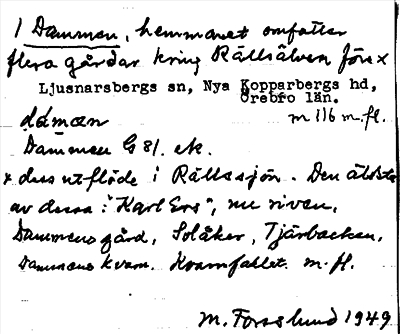 1 Dammen, hemmanet omfattar
flera gårdar kring Rällsälven före x
Ljusnarsbergs sn, Nya Kopparbergs hd,
Örebro län.
m 116 m.fl.
dámæn
Dammen G 81. ek.
x dess utflöde i Rällssjön. Den äldsta
av dessa: "Karl Ers", nu riven.
Dammens gård, Solåker, Tjärbacken.
Dammens kvarn. Kvarnfallet. m.fl.
M. Forsslund 1949